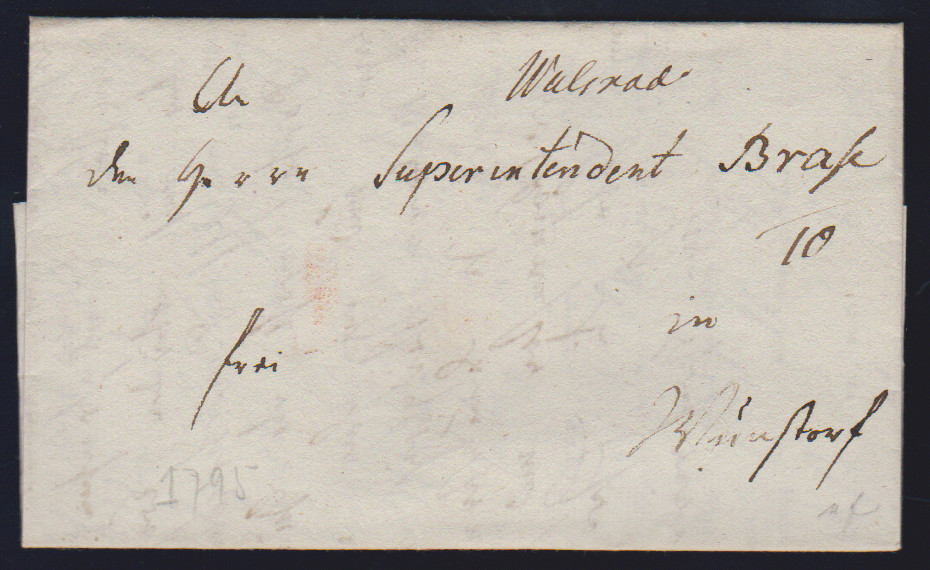 An Walsrode
den Herrn Superintendent Brase
10
in
frei
Wünstorf
1795